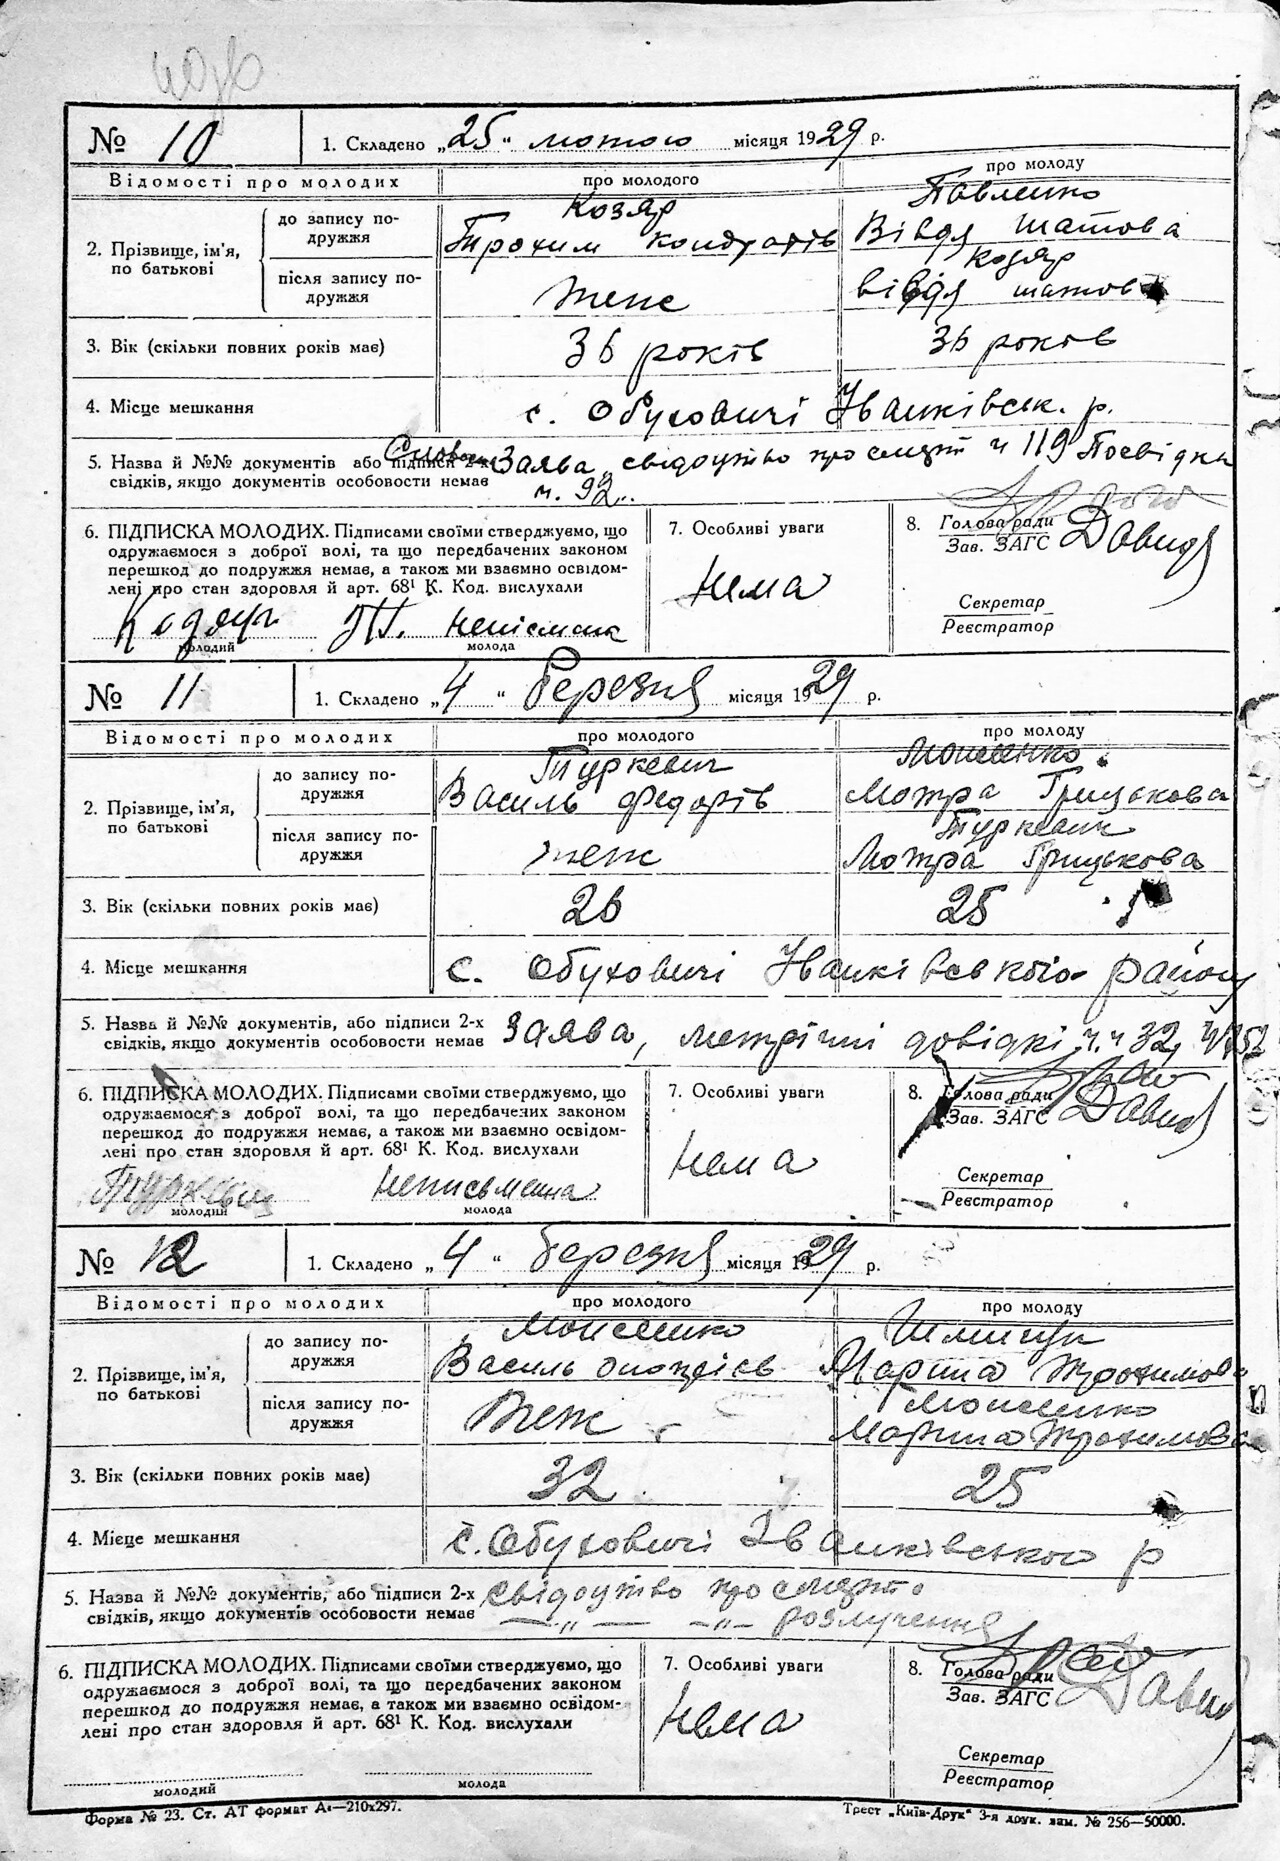 № 10 1. Складено „25“ лютого місяця 1929 р.
Відомості про молодих про молодого про молоду
2. Прізвище, ім'я, по батькові
до запису по-
дружжя
Козяр
Трохим Кондратів
Павленко
Вівдя
після запису по-
дружжя
теж
Козяр
Вівдя
3. Вік (скільки повних років має) 36 років 36 років
4. Місце мешкання с. Обуховичі Іванківськ. р.
5. Назва й №№ документів або підписи 2-х Заява, свідоцтво про смерть ч 119 Посвідка
свідків, якщо документів особовости немає ч. 92
6. ПІДПИСКА МОЛОДИХ. Підписами своїми стверджуємо, що
одружаємося з доброї волі, та що передбачених законом
перешкод до подружжя немає, а також ми взаємно освідом-
лені про стан здоровля й арт. 68¹ К. Код. вислухали
неписьмена
молодий молода
7. Особливі уваги
нема
8. Голова ради
Зав. ЗАГС
Секретар
Реєстратор
№ 11 1. Складено „4“ березня місяця 1929 р.
Відомості про молодих про молодого про молоду
2. Прізвище, ім'я,
по батькові
до запису по-
дружжя
Туркевич
Василь Федорів
Моисенко
Мотра Грицькова
після запису по-
дружжя
теж
Туркевич
Мотра Грицькова
3. Вік (скільки повних років має) 26 25
4. Місце мешкання с. Обуховичі Іванківського району
5. Назва й №№ документів, або підписи 2-х Заява, метричні довідкі ч.ч 32,
свідків, якщо документів особовости немає
6. ПІДПИСКА МОЛОДИХ. Підписами своїми стверджуємо, що
одружаємося з доброї волі, та що передбачених законом
перешкод до подружжя немає, а також ми взаємно освідом-
лені про стан здоровля й арт. 68¹ К. Код. вислухали
Туркевич неписьмена
молодий молода
7. Особливі уваги
нема
8. Голова ради
Зав. ЗАГС
Секретар
Реєстратор
№ 12 1. Складено „4“ березня місяця 1929 р.
Відомості про молодих про молодого про молоду
2. Прізвище, ім'я,
по батькові
до запису по-
дружжя
Моисенко
Василь
Марина Трохимова
після запису по-
дружжя
теж
Моисенко
Марина Трохимова
3. Вік (скільки повних років має) 32 25
4. Місце мешкання с. Обуховичі Іванківського р
5. Назва й №№ документів, або підписи 2-х свідоцтво про смерть
свідків, якщо документів особовости немає —„— —„— розлучення
6. ПІДПИСКА МОЛОДИХ. Підписами своїми стверджуємо, що
одружаємося з доброї волі, та що передбачених законом
перешкод до подружжя немає, а також ми взаємно освідом-
лені про стан здоровля й арт. 68¹ К. Код. вислухали
молодий молода
7. Особливі уваги
нема
8. Голова ради
Зав. ЗАГС
Секретар
Реєстратор
Форма № 23. Ст. АТ формат А4—210х297. Трест „Київ-Друк“ 3-я друк. зам. № 256—50000.